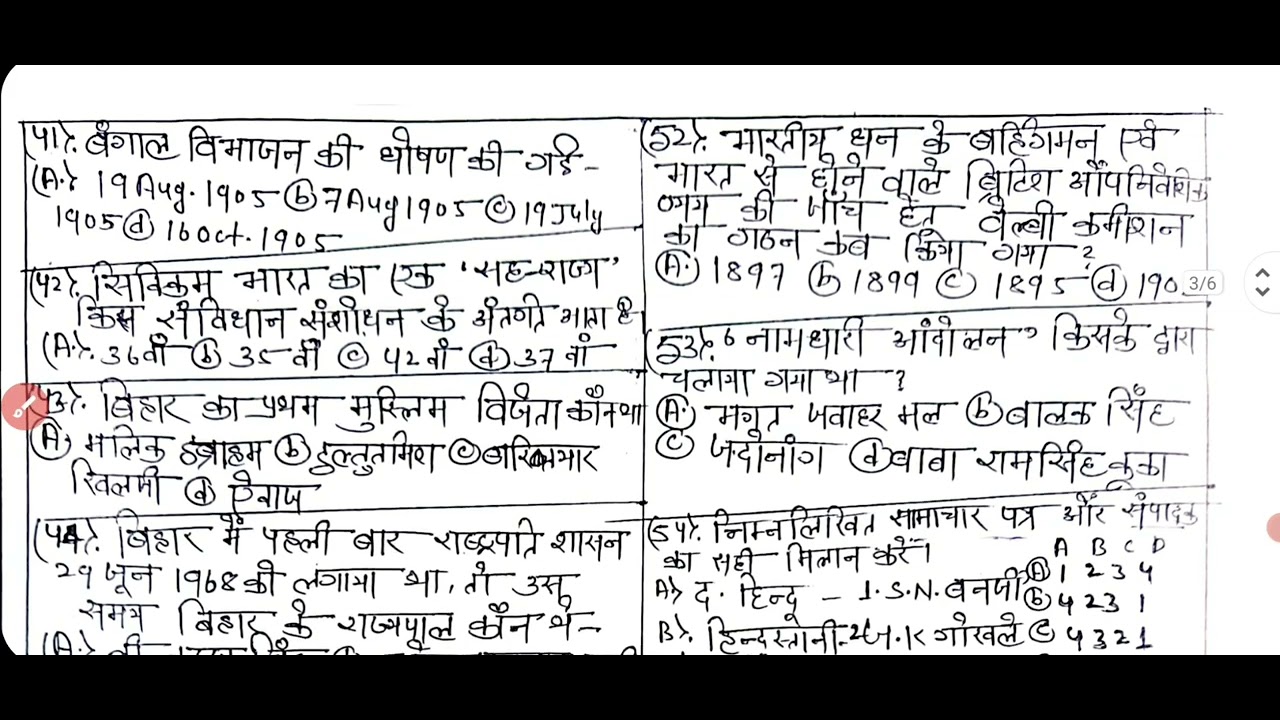 41). बंगाल विभाजन की घोषण की गई-
(A.) 19 Aug. 1905 (b) 7 Aug 1905 (c) 19 July
1905 (d) 16 Oct. 1905
42). सिक्किम भारत का एक 'सह-राज्य'
किस संविधान संशोधन के अंतर्गत माता है
(A.). 36वां (b) 35 वां (c) 42वां (d) 37 वां
43). बिहार का प्रथम मुस्लिम विजेता कौन था
(A) मालिक इब्राहम (b) इल्तुतमिश (c) बख्तियार
खिलजी (d) ऐवाज
(44). बिहार में पहली बार राष्ट्रपति शासन
29 जून 1968 को लगाया था, तो उस
समय बिहार के राज्यपाल कौन थे-
(52). भारतीय धन के बर्हिगमन एवं
भारत से होने वाले ब्रिटिश औपनिवेशिक
व्यय की जाँच हेतु वेल्बी कमीशन
का गठन कब किया गया ?
(A.) 1897 (b) 1899 (c) 1895 (d) 190
3/6
53). 'नामधारी आंदोलन' किसके द्वारा
चलाया गया था ?
(A.) मगूत जवाहर मल (b) बालक सिंह
(c) जदोनांग (d) बाबा रामसिंह कूका
(54). निम्नलिखित सामाचार पत्र और संपादक
का सही मिलान करें।
A B C D
A) द. हिन्दू - 1. S.N. बनर्जी (A) 1 2 3 4
(b) 4 2 3 1
B). हिन्दुस्तानी-2. G.K गोखले (c) 4 3 2 1